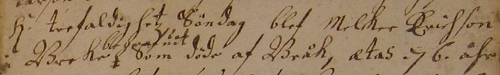 H. trefaldighetz Söndag blef Melker Erichson
i Brecke som döde af Bråk, ætas 76. åhr